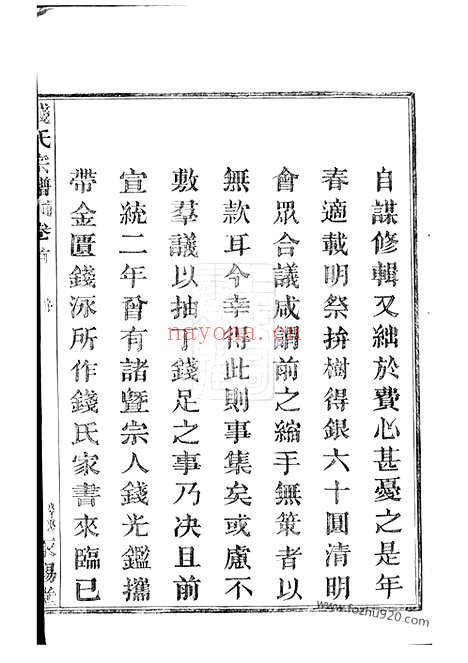 自謀修輯又絀於費心甚憂之是年
春適載明祭拚樹得銀六十圓清明
會眾合議咸謂前之縮手無策者以
無款耳今幸得此則事集矣或慮不
敷羣議以抽丁錢足之事乃决且前
宣統二年曾有諸暨宗人錢光鑑攜
帶金匱錢泳所作錢氏家書來臨已
錢氏宗譜 卷首 序
nayona.cn
www.fozhu920.com